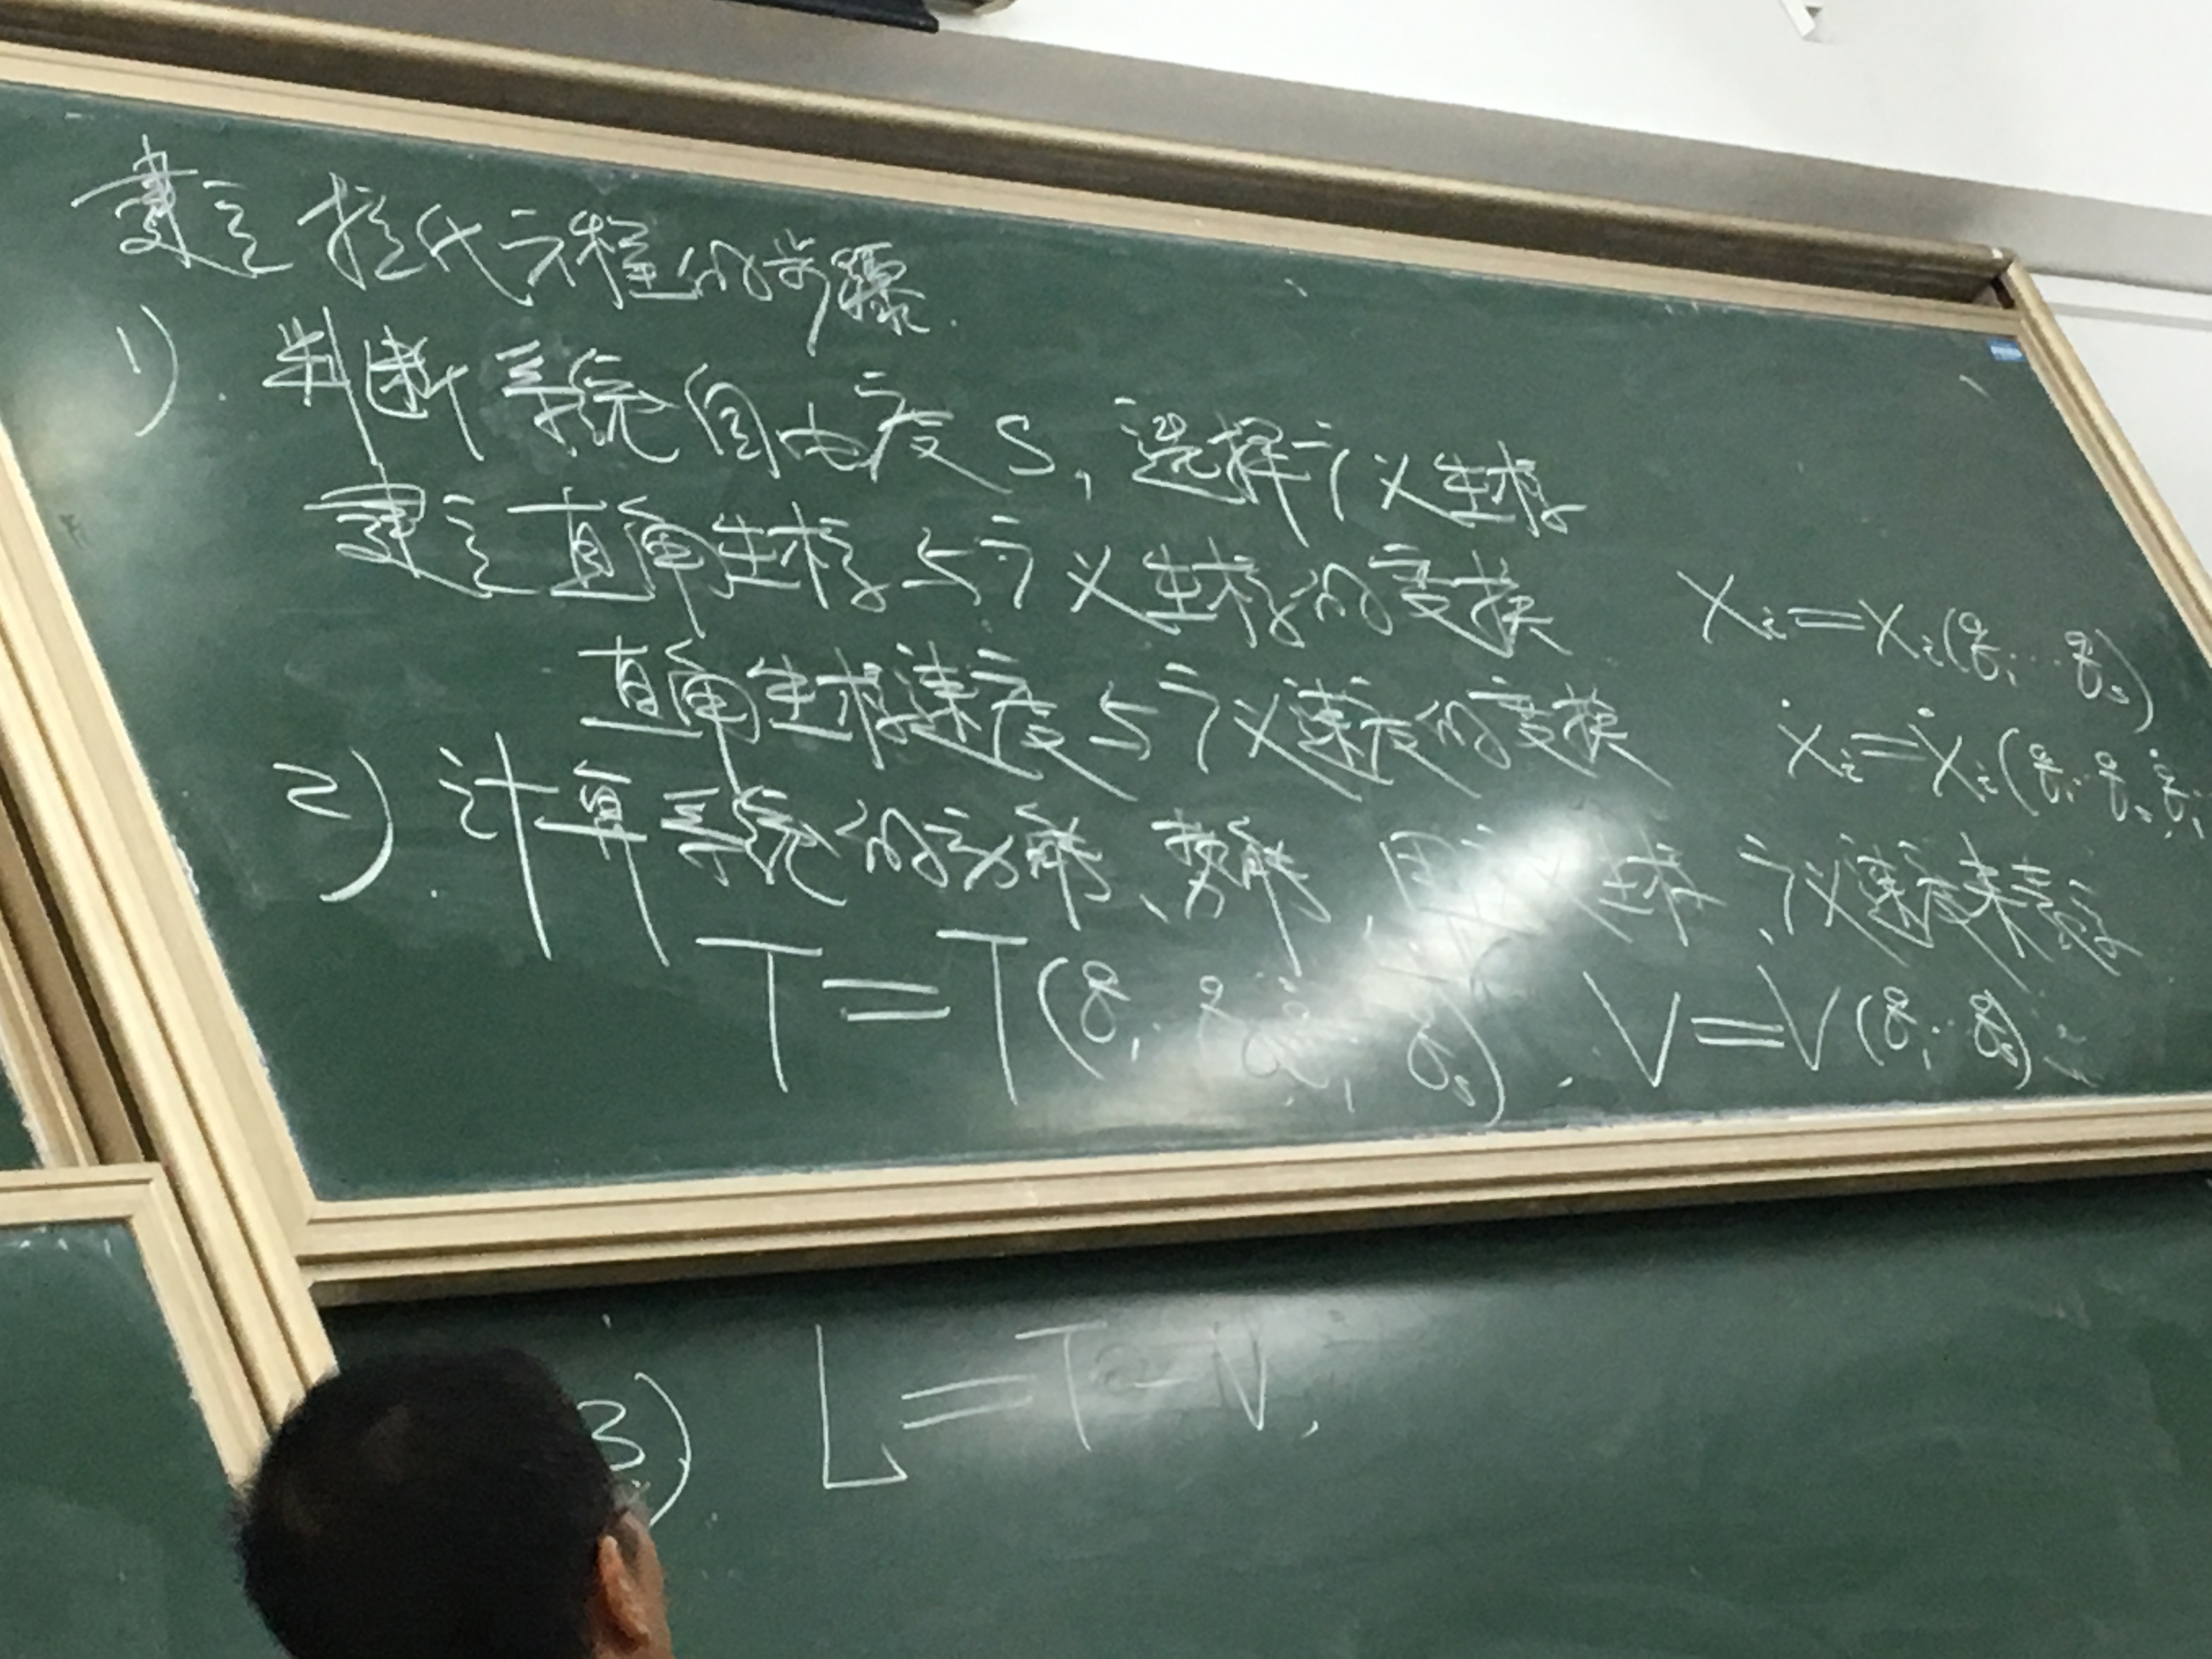 建立拉氏方程的步骤.
1). 判断系统自由度S, 选择广义坐标
建立直角坐标与广义坐标的变换 Xᵢ=Xᵢ(q₁…qₛ)
直角坐标速度与广义速度的变换 Ẋᵢ=Ẋᵢ(q₁…qₛ, q̇₁
2). 计算系统的动能、势能, 用广义坐标、广义速度来表示
T=T(q₁ qₛ, q̇ₛ). V=V(q₁…qₛ)
3). L=T-V,